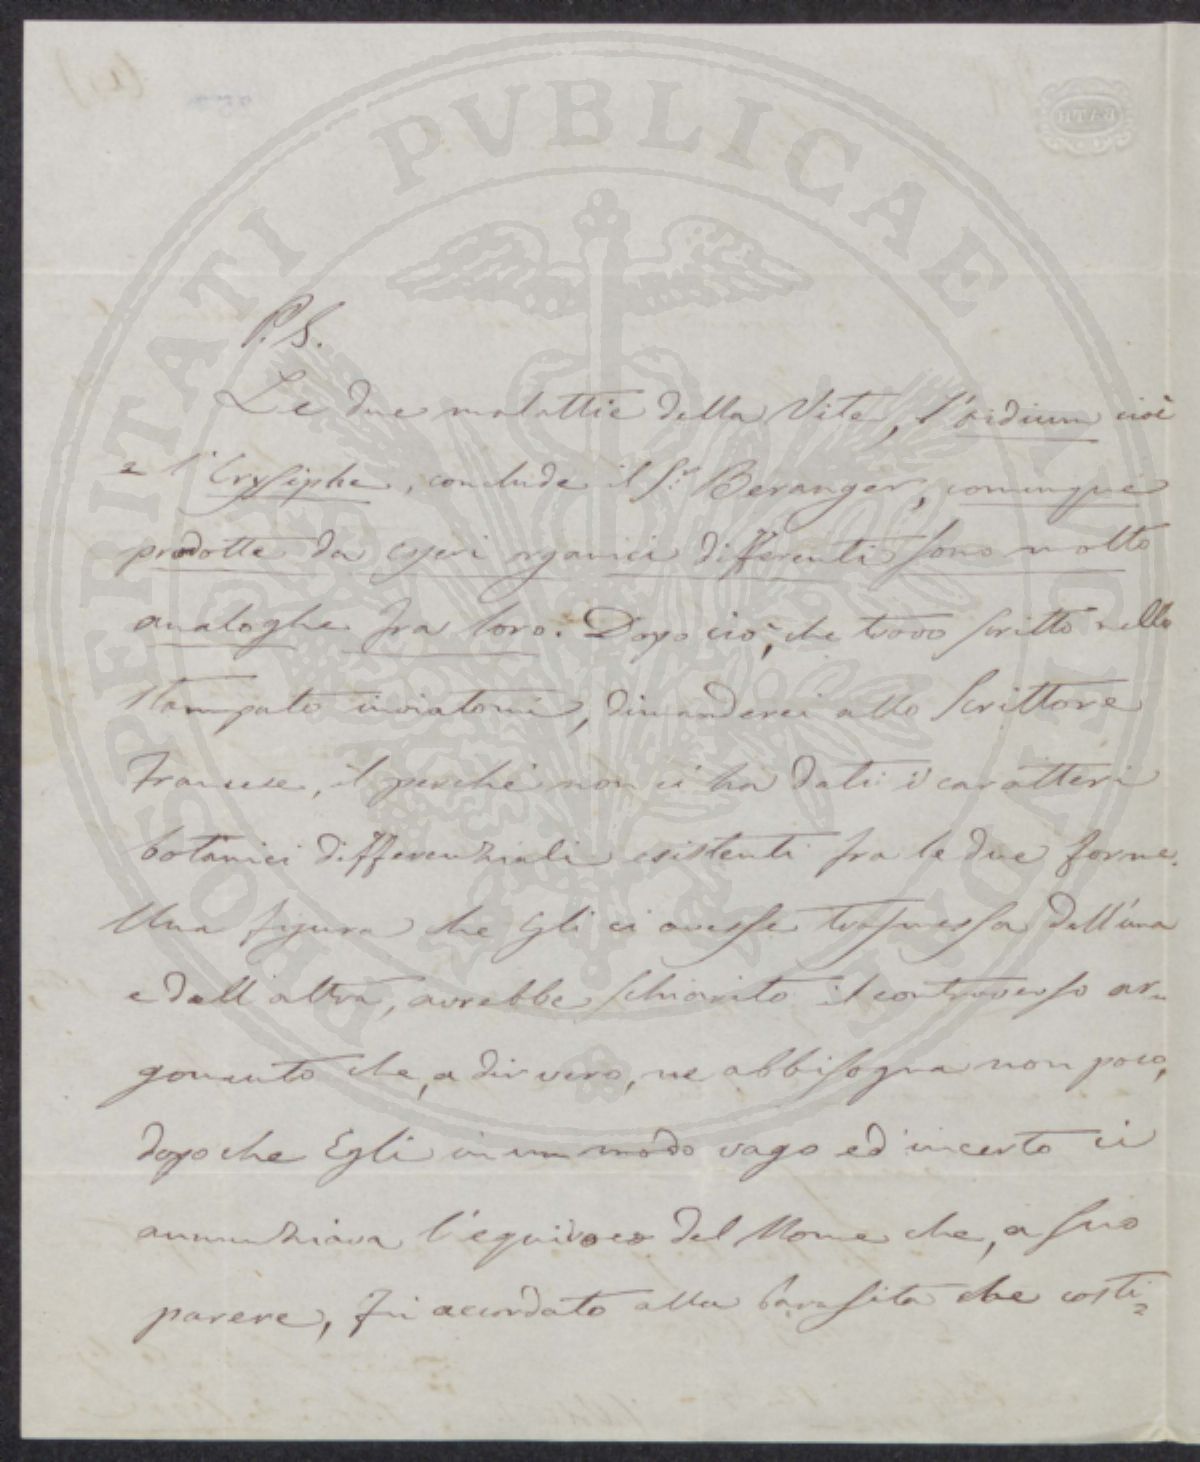 PROSPERITATI PVBLICAE AVGENDAE
BATH
P. S.
Le due malattie della Vite, l'oidium cioè
e l'Erysiphe, conchide il S.r Beranger, comunque
prodotte da esseri organici differenti sono molto
analoghe fra loro. Dopo ciò, che trovo scritto nello
stampato inviatomi, dimanderei allo Scrittore
Francese, il perché non ci ha dati i caratteri
botanici differenziali esistenti fra le due forme.
Una figura che Egli ci avesse trasmessa dell'una
e dell'altra, avrebbe schiarito il controverso ar=
gomento che, a dir vero, ne abbisogna non poco,
dopo che Egli in un modo vago ed incerto ci
annunziava l'equivoco del Nome che, a suo
parere, fu accordato alla parasita che costi=